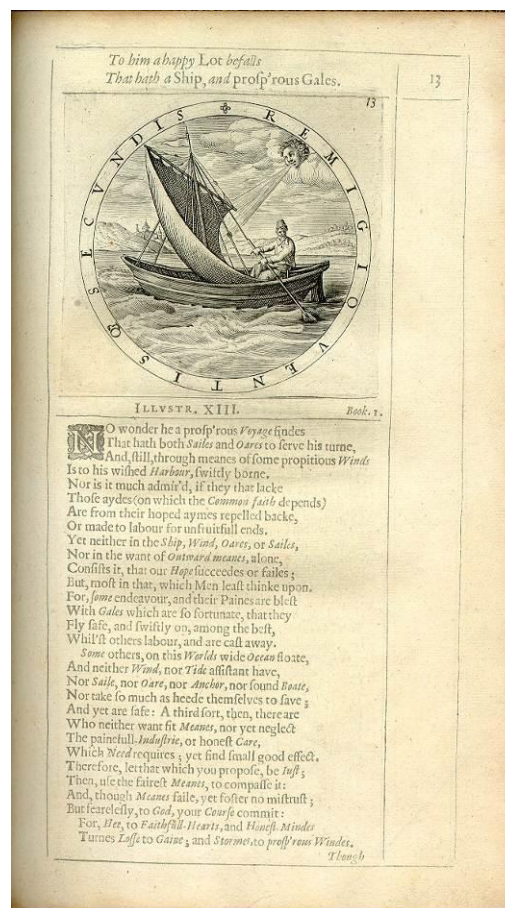 To him a happy Lot befalls
That hath a Ship, and prosp'rous Gales.
13
13
REMIGIO VENTISQ SECVNDIS
ILLVSTR. XIII. Book. 1.
NO wonder he a prosp'rous Voyage findes
That hath both Sailes and Oares to serve his turne,
And, still, through meanes of some propitious Winds
Is to his wished Harbour, swiftly borne.
Nor is it much admir'd, if they that lacke
Those aydes (on which the Common faith depends)
Are from their hoped aymes repelled backe,
Or made to labour for unfruitfull ends.
Yet neither in the Ship, Wind, Oares, or Sailes,
Nor in the want of Outward meanes, alone,
Consists it, that our Hope succeedes or failes;
But, most in that, which Men least thinke upon.
For, some endeavour, and their Paines are blest
With Gales which are so fortunate, that they
Fly safe, and swiftly on, among the best,
Whil'st others labour, and are cast away.
Some others, on this Worlds wide Ocean floate,
And neither Wind, nor Tide assistant have,
Nor Saile, nor Oare, nor Anchor, nor sound Boate,
Nor take so much as heede themselves to save;
And yet are safe: A third sort, then, there are
Who neither want fit Meanes, nor yet neglect
The painefull-Industrie, or honest Care,
Which Need requires; yet find small good effect.
Therefore, let that which you propose, be Iust;
Then, use the fairest Meanes, to compasse it:
And, though Meanes faile, yet foster no mistrust;
But fearelessly, to God, your Course commit:
For, Hee, to Faithfull-Hearts, and Honest-Mindes
Turnes Losse to Gaine; and Stormes, to prosp'rous Windes.
Though